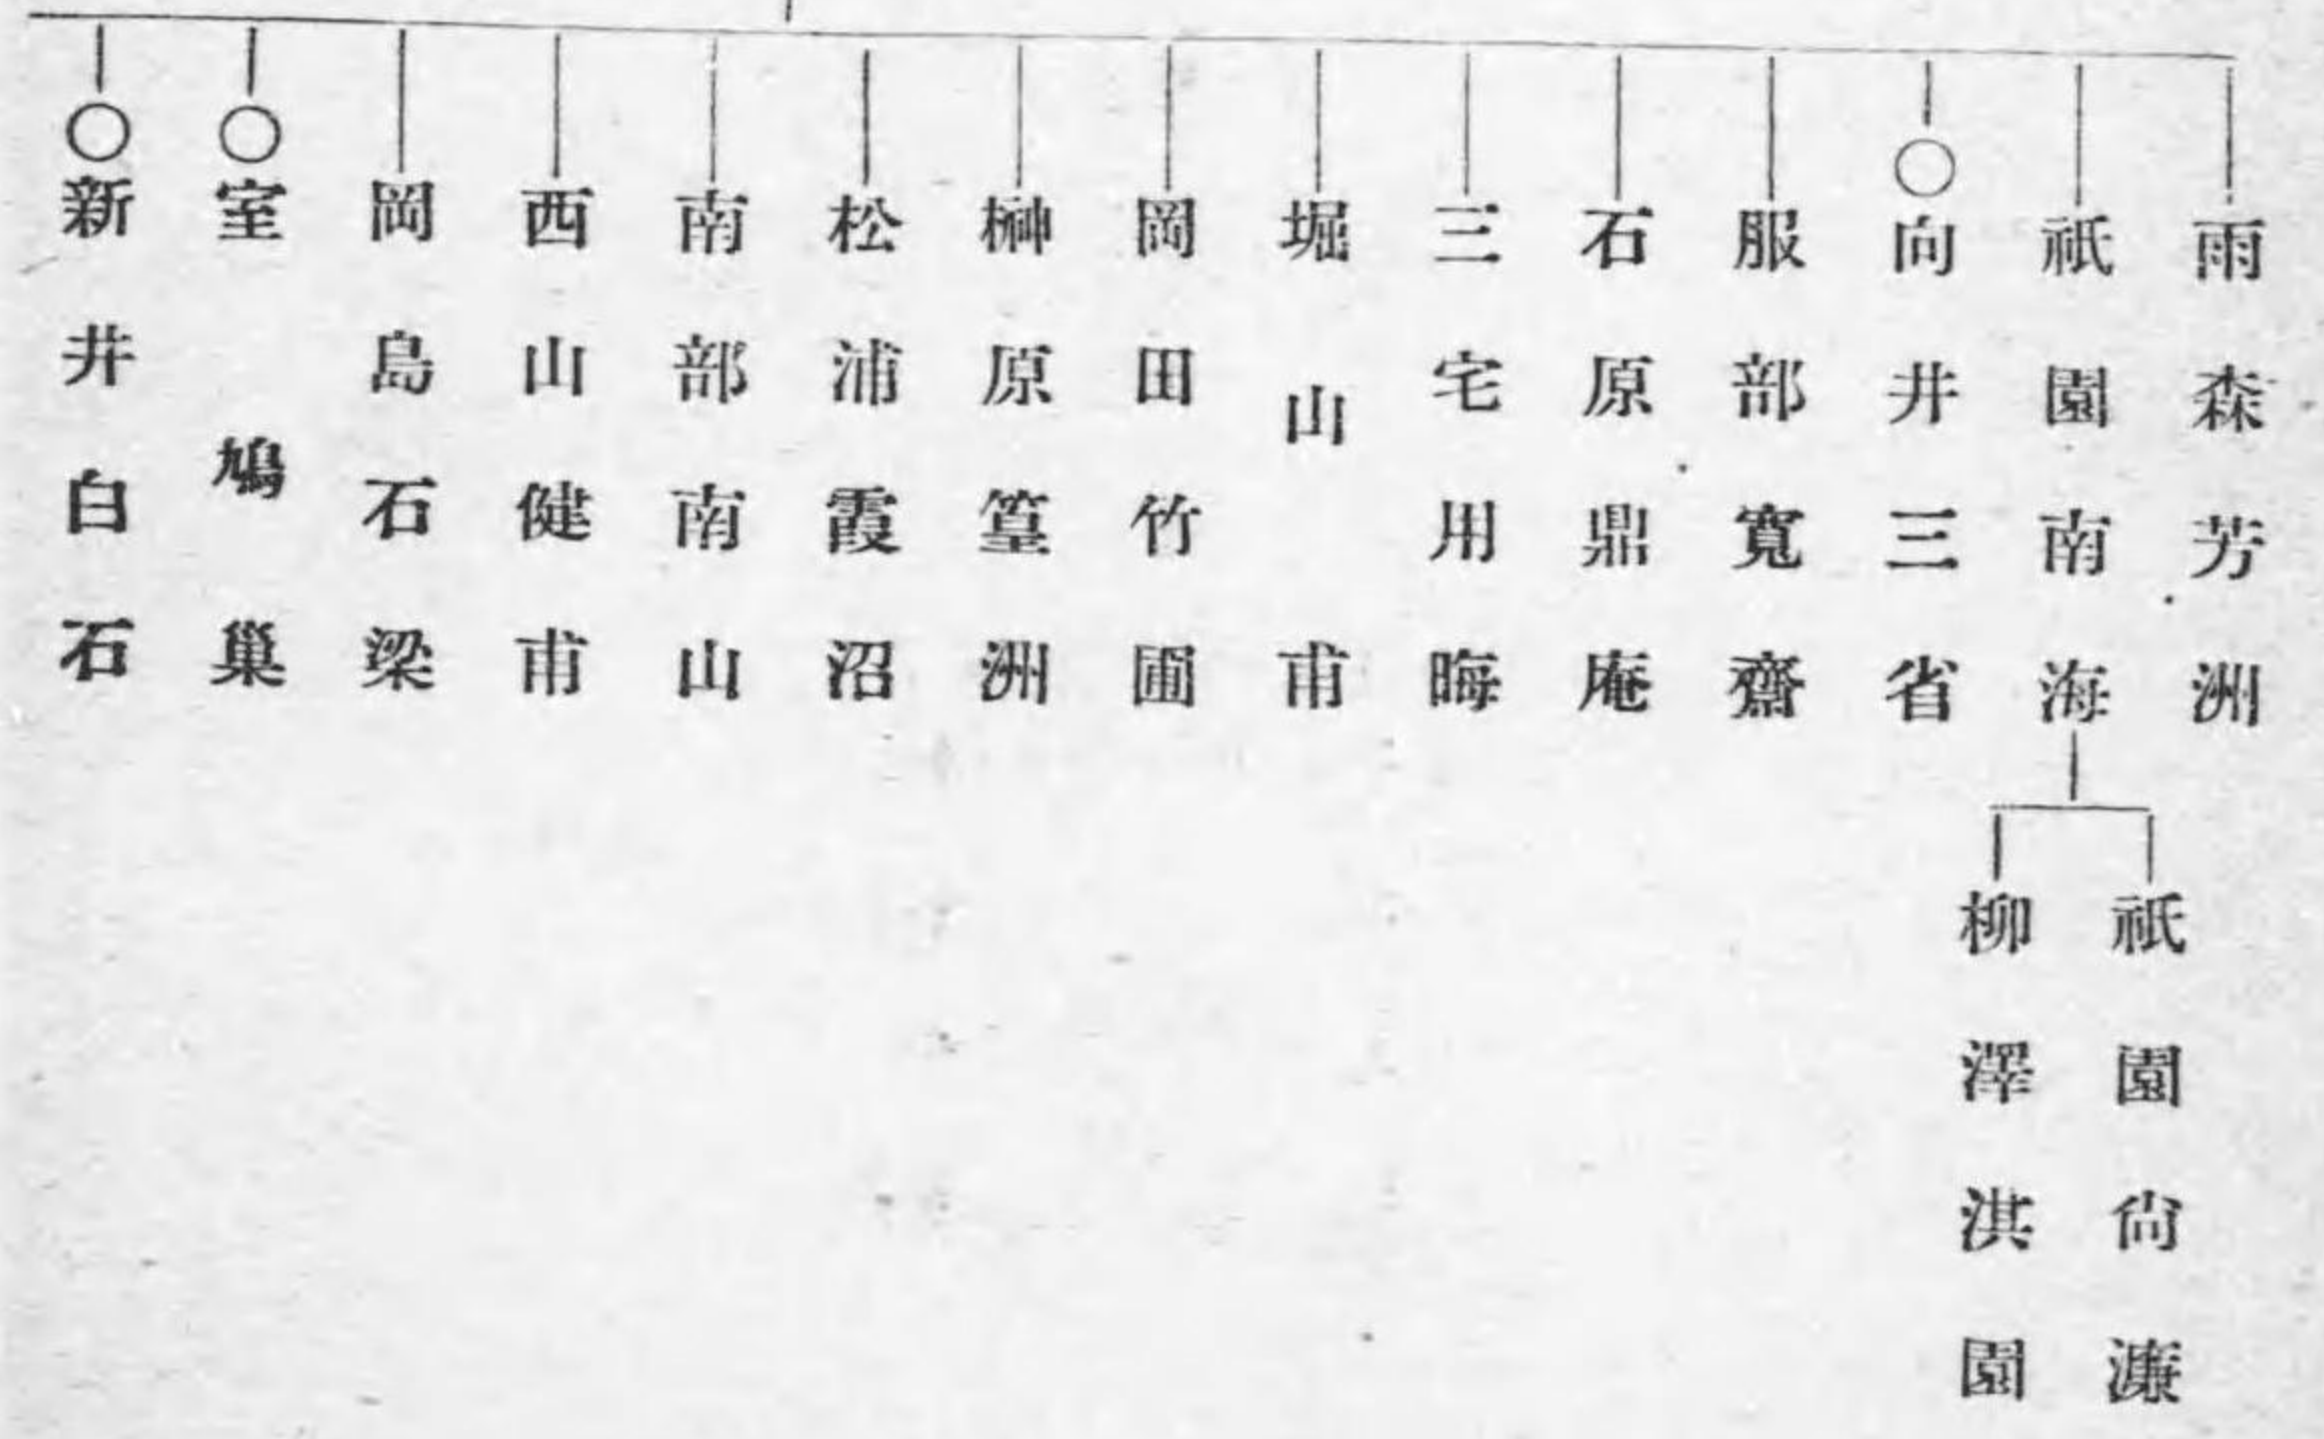 雨森芳洲
祇園南海
祇園尙濂
柳澤淇園
○向井三省
服部寬齋
石原鼎庵
三宅用晦
堀山甫
岡田竹圃
榊原篁洲
松浦霞沼
南部南山
西山健甫
岡島石梁
○室鳩巢
○新井白石